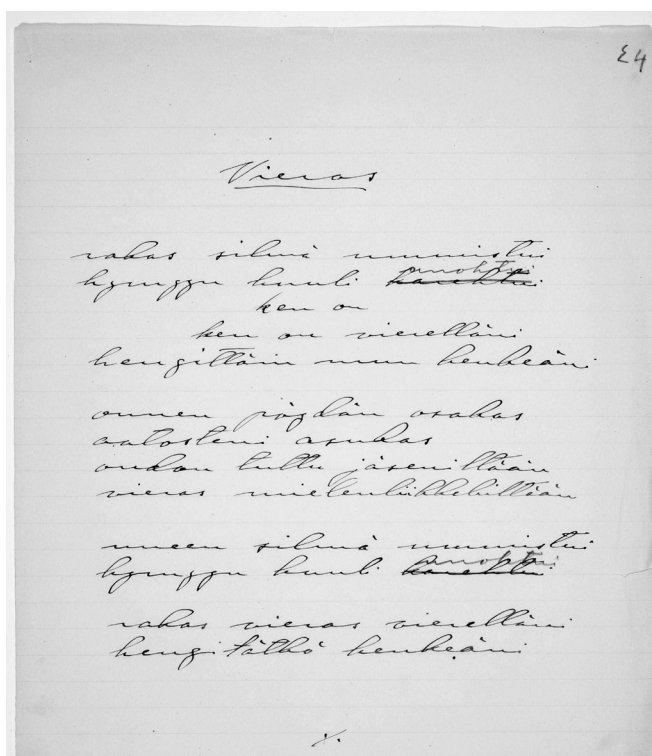 Vieras
rakas silmä ummistui
hymyyn huuli karehtui unohtui
ken on
ken on vierelläni
hengittäin mun henkeäni
onnen pöydän osakas
aatosteni asukas
oudon tuttu jäseniltään
vieras mielenliikkehiltään
uneen silmä ummistui
hymyyn huuli karehtui unohtui
rakas vieras vierelläni
hengitätkö henkeäni